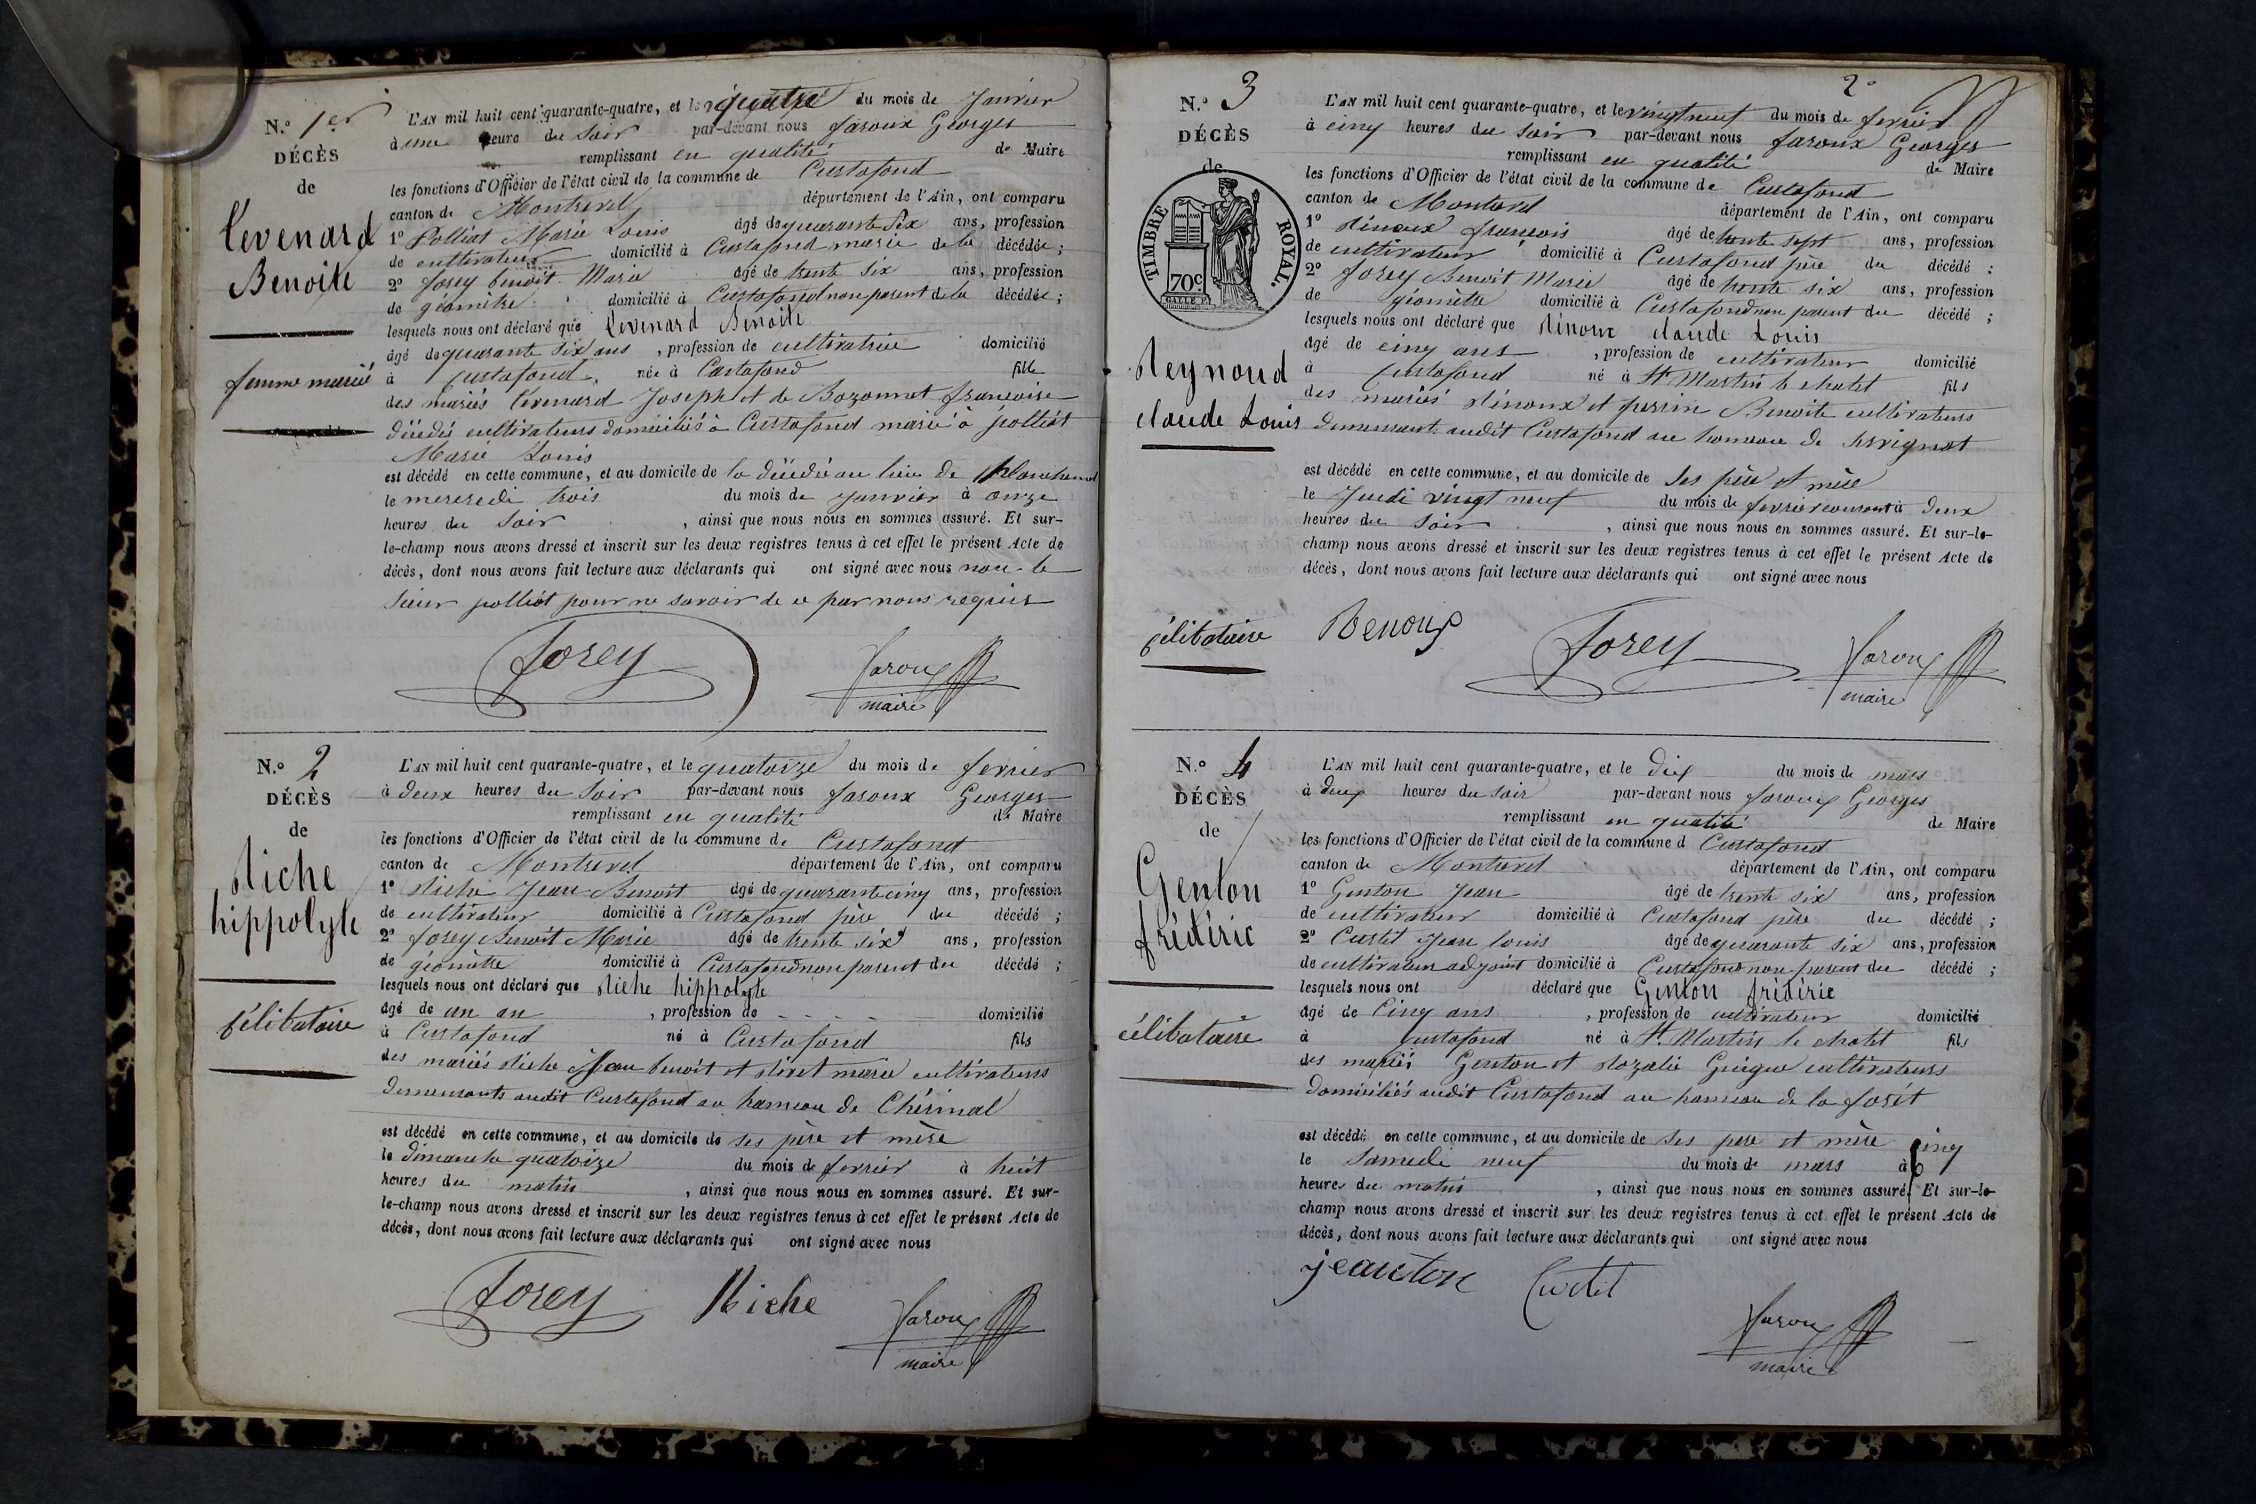 N.º 1er
DÉCÈS
de
Cevenard
Benoite
femme mariée
L'AN mil huit cent quarante-quatre, et le quatre du mois de Janvier
à une heure du soir par-devant nous faroux Georges
remplissant en qualité de Maire
les fonctions d'Officier de l'état civil de la commune de Curtafond
canton de Montrevel département de l'Ain, ont comparu
1º Polliat Marie Louis âgé de quarante six ans, profession
de cultivateur domicilié à Curtafond marie de la décédée ;
2º forey benoit Marie âgé de trente six ans, profession
de géomètre domicilié à Curtafond non parent de la décédée ;
lesquels nous ont déclaré que Cevenard Benoite
âgé de quarante six ans , profession de cultivatrice domicilié
à Curtafond, née à Curtafond fille
des mariés Cevenard Joseph et de Bozonnet françoise
décédés cultivateurs domiciliés à Curtafond marié à polliat
Marie Louis
est décédé en cette commune, et au domicile de la décédée au lieu de
le mercredi trois du mois de janvier à onze
heures du soir , ainsi que nous nous en sommes assuré. Et sur-
le-champ nous avons dressé et inscrit sur les deux registres tenus à cet effet le présent Acte de
décès, dont nous avons fait lecture aux déclarants qui ont signé avec nous non le
sieur polliat pour ne savoir de ce par nous requis
forey
faroux
maire
N.º 2
DÉCÈS
de
Riche
hippolyte
Célibataire
L'AN mil huit cent quarante-quatre, et le quatorze du mois de fevrier
à deux heures du soir par-devant nous faroux Georges
remplissant en qualité de Maire
les fonctions d'Officier de l'état civil de la commune de Curtafond
canton de Montrevel département de l'Ain, ont comparu
1º Riche Jean Benoit âgé de quarante cinq ans, profession
de cultivateur domicilié à Curtafond père du décédé ;
2º forey Benoit Marie âgé de trente six ans, profession
de géomètre domicilié à Curtafond non parent du décédé ;
lesquels nous ont déclaré que Riche hippolyte
âgé de un an , profession de domicilié
à Curtafond né à Curtafond fils
des mariés Riche Jean benoit et marie cultivateurs
demeurants audit Curtafond au hameau de Chérinal
est décédé en cette commune, et au domicile de ses père et mère
le dimanche quatorze du mois de fevrier à huit
heures du matin , ainsi que nous nous en sommes assuré. Et sur-
le-champ nous avons dressé et inscrit sur les deux registres tenus à cet effet le présent Acte de
décès, dont nous avons fait lecture aux déclarants qui ont signé avec nous
forey Riche faroux
maire
2º
N.º 3
DÉCÈS
de
TIMBRE ROYAL.
70c
Reynoud
claude Louis
Célibataire
L'AN mil huit cent quarante-quatre, et le vingt neuf du mois de fevrier
à cinq heures du soir par-devant nous faroux Georges
remplissant en qualité de Maire
les fonctions d'Officier de l'état civil de la commune de Curtafond
canton de Montrevel département de l'Ain, ont comparu
1º Rénoux françois âgé de trente sept ans, profession
de cultivateur domicilié à Curtafond père du décédé ;
2º forey Benoit Marie âgé de trente six ans, profession
de géomètre domicilié à Curtafond non parent du décédé ;
lesquels nous ont déclaré que Rénoux claude Louis
âgé de cinq ans , profession de cultivateur domicilié
à Curtafond né à St Martin le chatel fils
des mariés Rénoux et perrin Benoite cultivateurs
demeurant audit Curtafond au hameau de servignat
est décédé en cette commune, et au domicile de ses père et mère
le Jeudi vingt neuf du mois de fevrier courant à deux
heures du soir , ainsi que nous nous en sommes assuré. Et sur-le-
champ nous avons dressé et inscrit sur les deux registres tenus à cet effet le présent Acte de
décès, dont nous avons fait lecture aux déclarants qui ont signé avec nous
Renoux forey faroux
maire
N.º 4
DÉCÈS
de
Genton
frédéric
célibataire
L'AN mil huit cent quarante-quatre, et le dix du mois de mars
à deux heures du soir par-devant nous faroux Georges
remplissant en qualité de Maire
les fonctions d'Officier de l'état civil de la commune d Curtafond
canton de Montrevel département de l'Ain, ont comparu
1º Genton Jean âgé de trente six ans, profession
de cultivateur domicilié à Curtafond père du décédé ;
2º Curtet Jean louis âgé de quarante six ans, profession
de cultivateur adjoint domicilié à Curtafond non parent du décédé ;
lesquels nous ont déclaré que Genton frédéric
âgé de Cinq ans , profession de cultivateur domicilié
à Curtafond né à St Martin le chatel fils
des mariés Genton et Rozalie Guigue cultivateurs
domiciliés audit Curtafond au hameau de la forêt
est décédé en cette commune, et au domicile de ses père et mère
le samedi neuf du mois de mars à cinq
heures du matin , ainsi que nous nous en sommes assuré. Et sur-le-
champ nous avons dressé et inscrit sur les deux registres tenus à cet effet le présent Acte de
décès, dont nous avons fait lecture aux déclarants qui ont signé avec nous
jeanton Curtet
faroux
maire